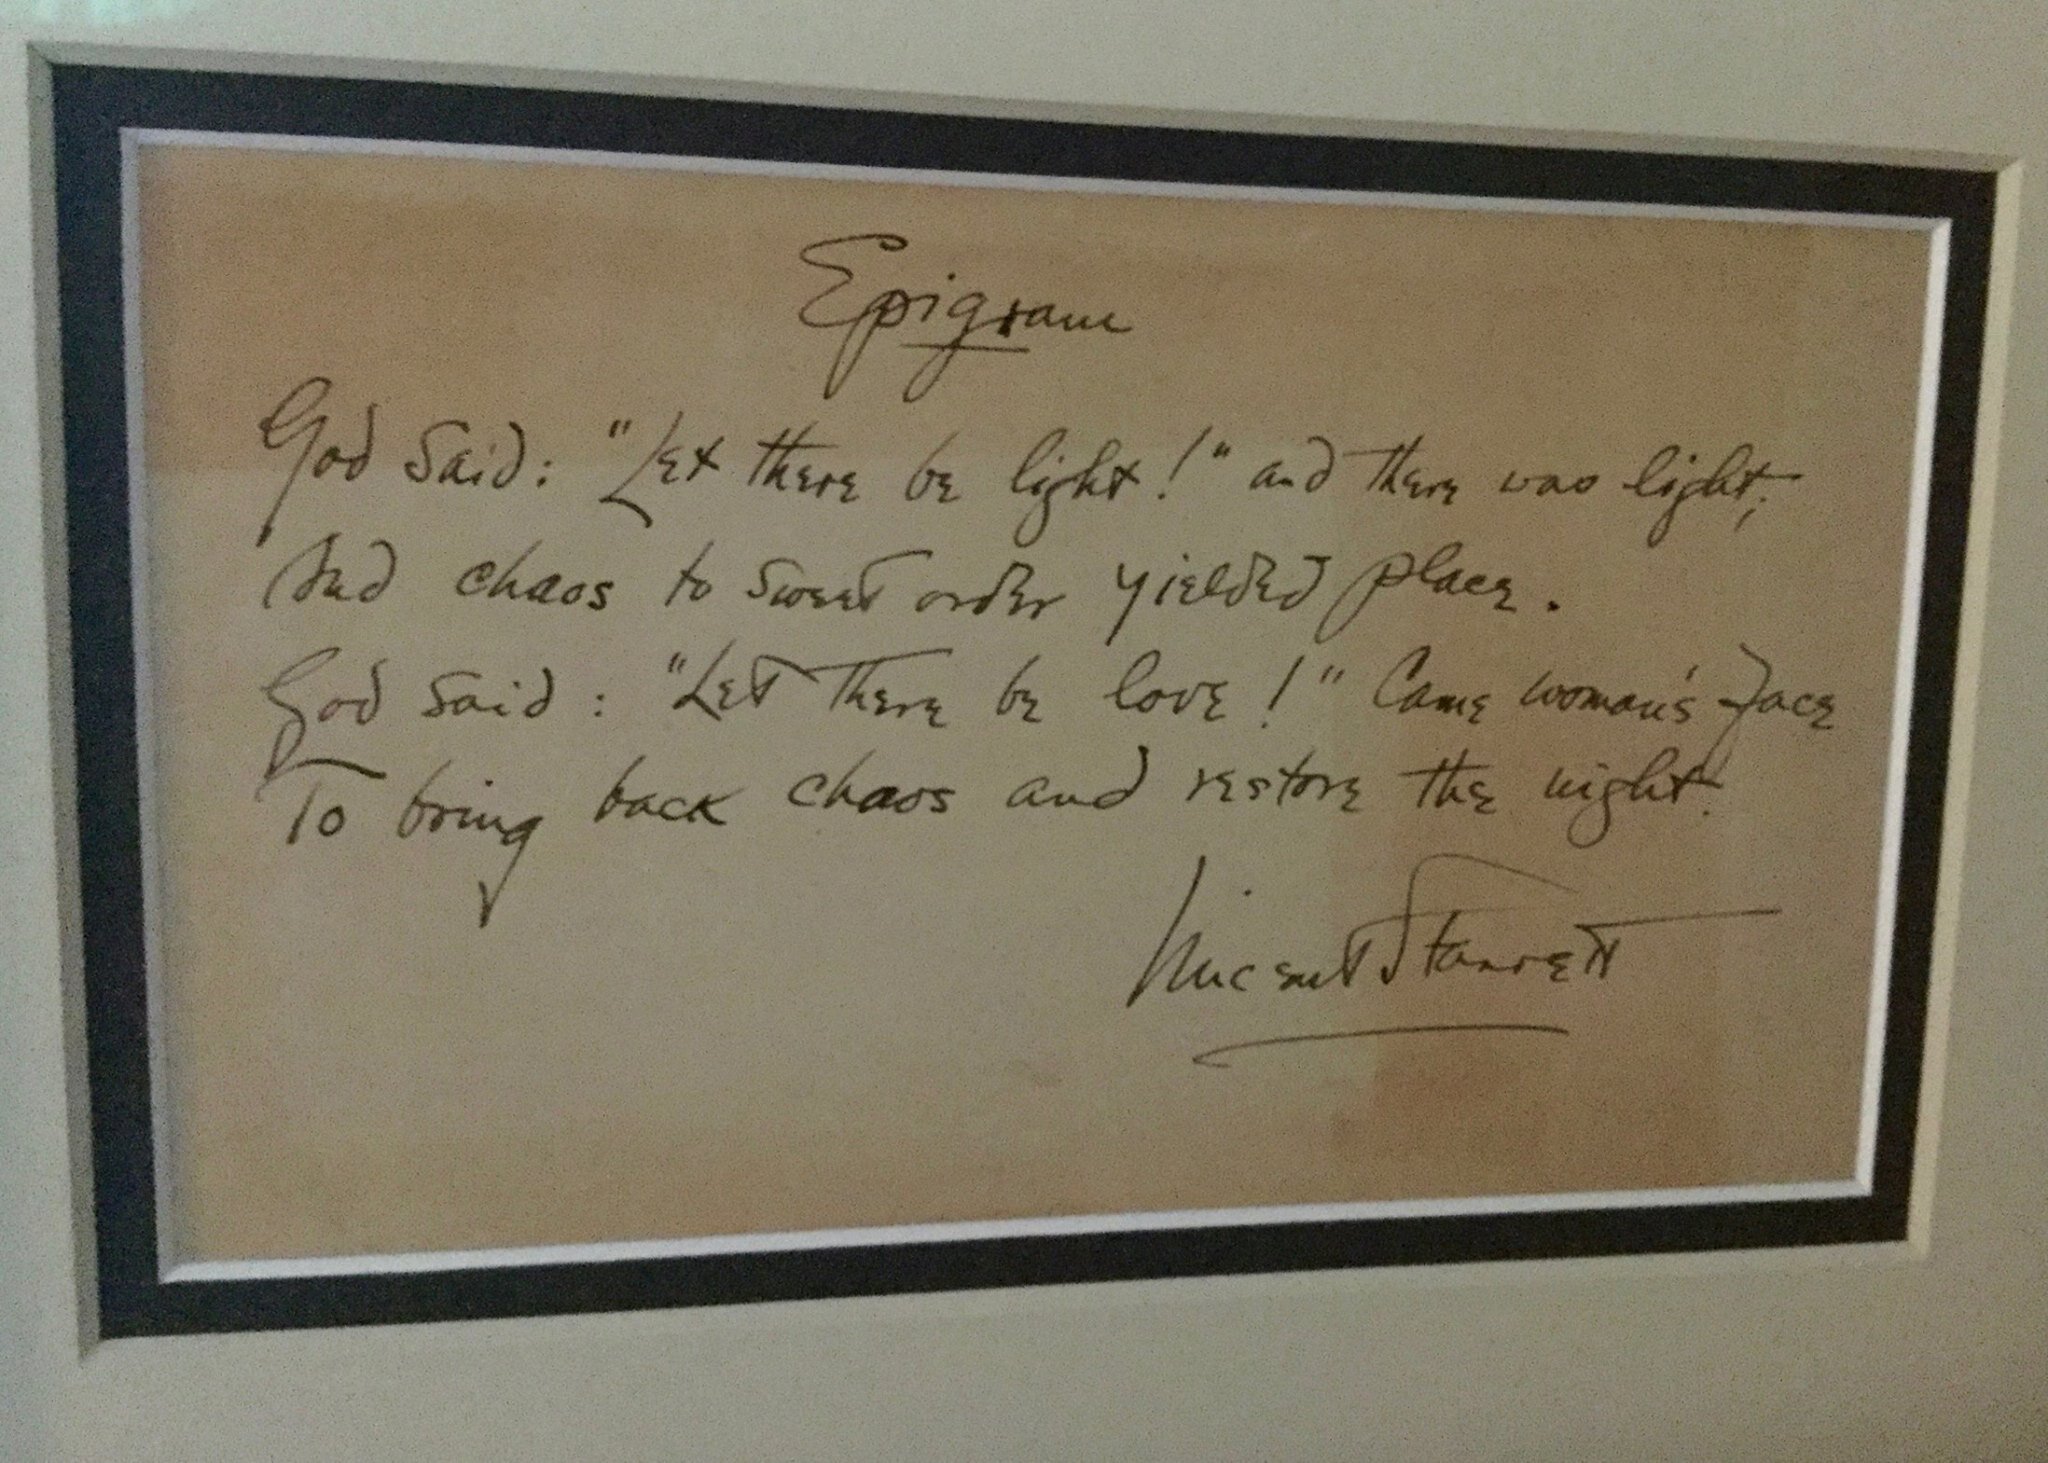 Epigram
God said: "Let there be light!" and there was light;
And chaos to sweet order yielded place.
God said: "Let there be love!" Came woman's face
To bring back chaos and restore the night.
Vincent Starrett